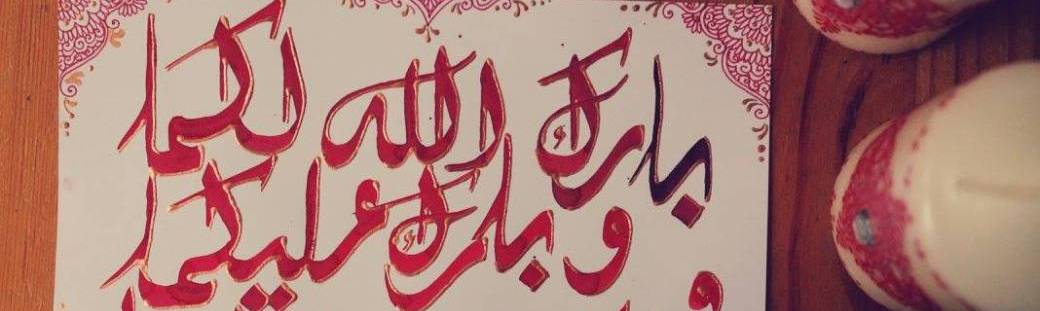 بارك الله لكما
وبارك عليكما
و